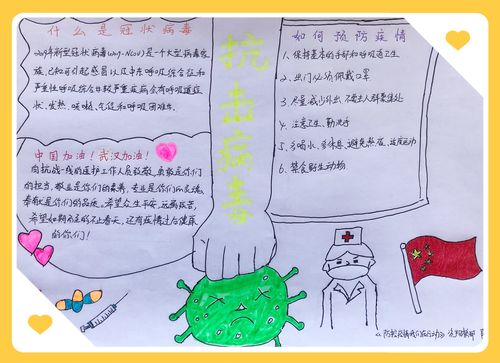 什么是冠状病毒
2019年新型冠状病毒(2019-NCOV)是一个大型病毒家
族,已知可引起感冒以及中东呼吸综合征和
严重性呼吸综合征等较严重疾病会有呼吸道症
状、发热、咳嗽、气促和呼吸困难等.
中国加油!武汉加油!
向抗战一线的医护工作人员致敬,勇敢是你们
的担当,敬业是你们的素养,专业是你们的灵魂,
奉献是你们的品质。希望众生平安,远离疾苦,
希望如期而至的不止春天,还有疫情过后健康
的你们!
抗击病毒
如何预防疫情
1、保持基本的手部和呼吸道卫生
2、出门必须佩戴口罩
3、尽量减少外出,不要去人群集结处
4、注意卫生、勤洗手
5、多喝水、多休息、避免熬夜、适度运动
6、禁食野生动物